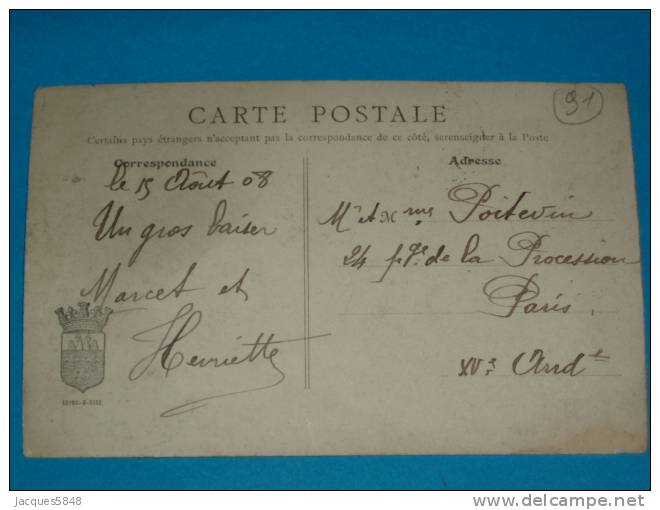 CARTE POSTALE
91
Certains pays étrangers n'acceptant pas la correspondance de ce côté, se renseigner à la Poste
Correspondance
le 15 Août 08
Un gros baiser
Marcel et
Henriette
SEINE-&-OISE
Adresse
Mr et Mme Poitevin
24 pge de la Procession
Paris.
XVe Arrdt
Jacques5848
delcampe.net